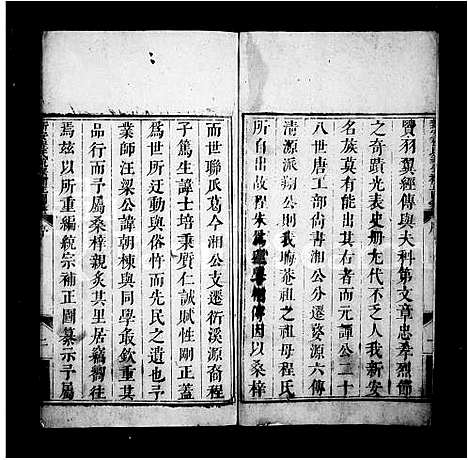 賢羽翼經傳與夫科第文章忠孝烈節
之奇蹟光表史册左代不乏人我新安
名族莫有能出其右者而元譚公二十
八世唐工尚書湘公分遷婺源六傳
清源派朔公則我晦菴祖之祖母程氏
所自出故程朱傳因以桑梓
而世聯瓜葛今湘公支遷衍溪源裔程
子篤生諱士培秉質仁誠賦性剛正蓋
為世所迂動與俗忤而先民之遺也予
業師汪梁公諱朝棟與同學敢欽重其
品行子屬桑梓親炙其里居竊嚮往
焉兹以所重編統宗補正圖纂示予屬
序
二